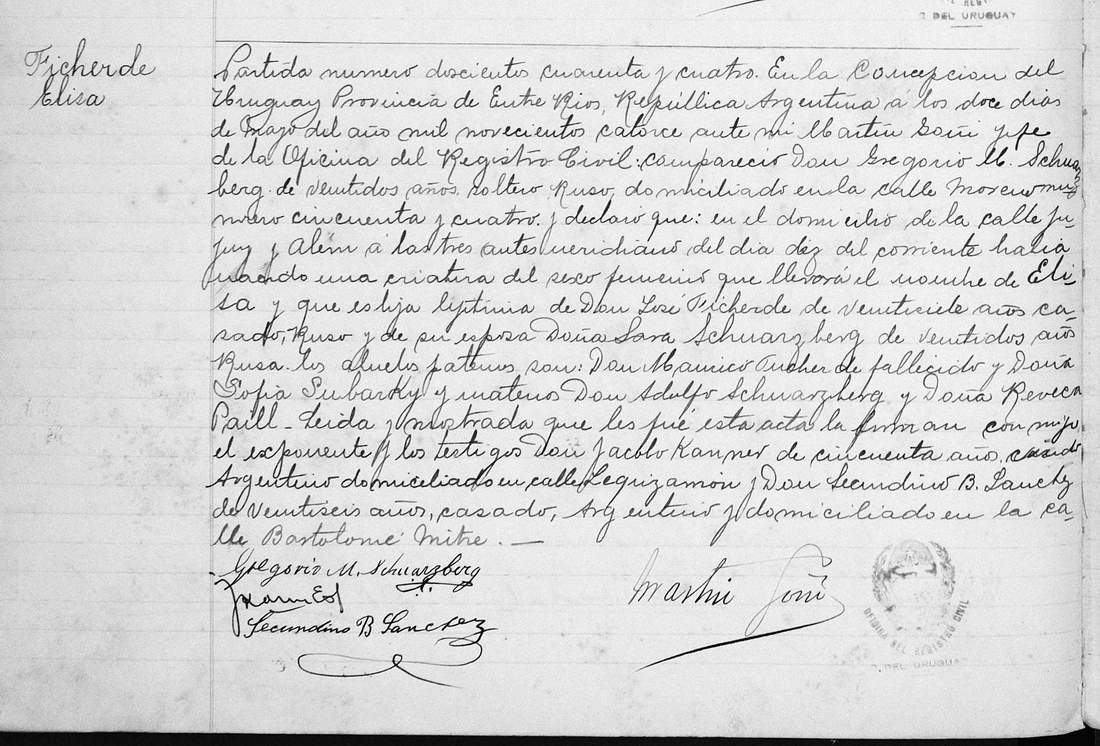 REGI
DEL URUGUAY
Ficherde
Elisa
Partida numero doscientos cuarenta y cuatro. En la Concepcion del
Uruguay Provincia de Entre Rios, Repúllica Argentina á los doce dias
de Mayo del año mil novecientos catorce ante mi Martin Goñi jefe
de la Oficina del Registro Civil: compareció Don Gregorio M. Schuarz
berg. de veintidos años. soltero Ruso, domiciliado en la calle Moreno nu-
mero cincuenta y cuatro. y declaró que: en el domicilio de la calle Ju-
juy y Alem á las tres antes meridiano del dia diez del corriente habia
nacido una criatura del sexo femenino que llevará el nombre de Eli-
sa y que es hija lejitima de Don José Ficherde de veintisiete años ca-
sado, Ruso y de su esposa Doña Sara Schuarzberg de veintidos años
Rusa. los abuelos paternos son: Don Mauricio Ficherde fallecido y Doña
Sofia y maternos Don Adolfo Schuarzberg y Doña Reveca
Paill - Leida y mostrada que les fué esta acta la firman con migo
el exponente y los testigos Don Jacobo Kanner de cincuenta años, casado
Argentino domiciliado en calle Leguizamon y Don Secundino B. Sanchez
de veintiseis años, casado, Argentino y domiciliado en la ca-
lle Bartolomé Mitre. —
Gregorio M. Schuarzberg
Martin Goñi
Secundino B Sanchez
OFICINA DEL REGISTRO CIVIL
DEL URUGUAY